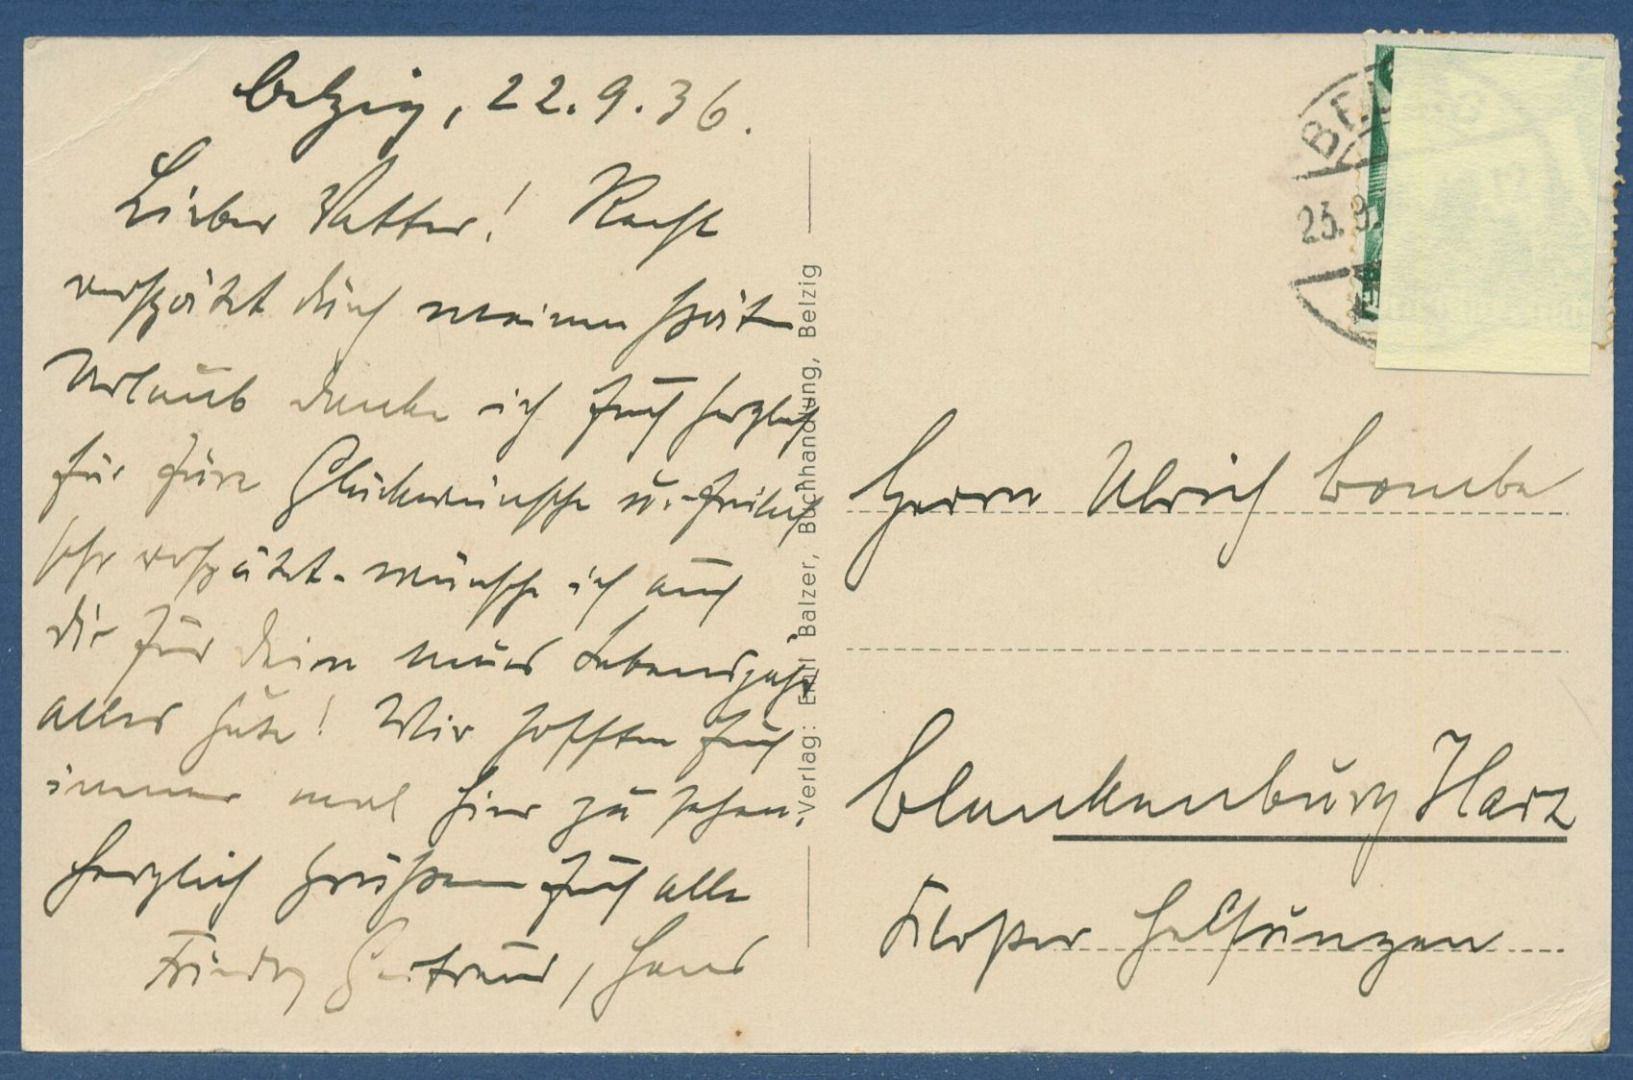 Belzig, 22.9.36.
Lieber Vatter! Recht
verspätet durch meinen Spät
Urlaub danke ich Euch herzlich
für Eure Glückwünsche u. freilich
sehr verspätet - wünsche ich auch
Dir für Dein neues Lebensjahr
alles Gute! Wir hofften Euch
immer mal hier zu sehen.
Herzlich grüßen Euch alle
Gertraud, Hans
Verlag: Emil Balzer, Buchhandlung, Belzig
23.9.
Herrn Ulrich Bombe
Blankenburg Harz